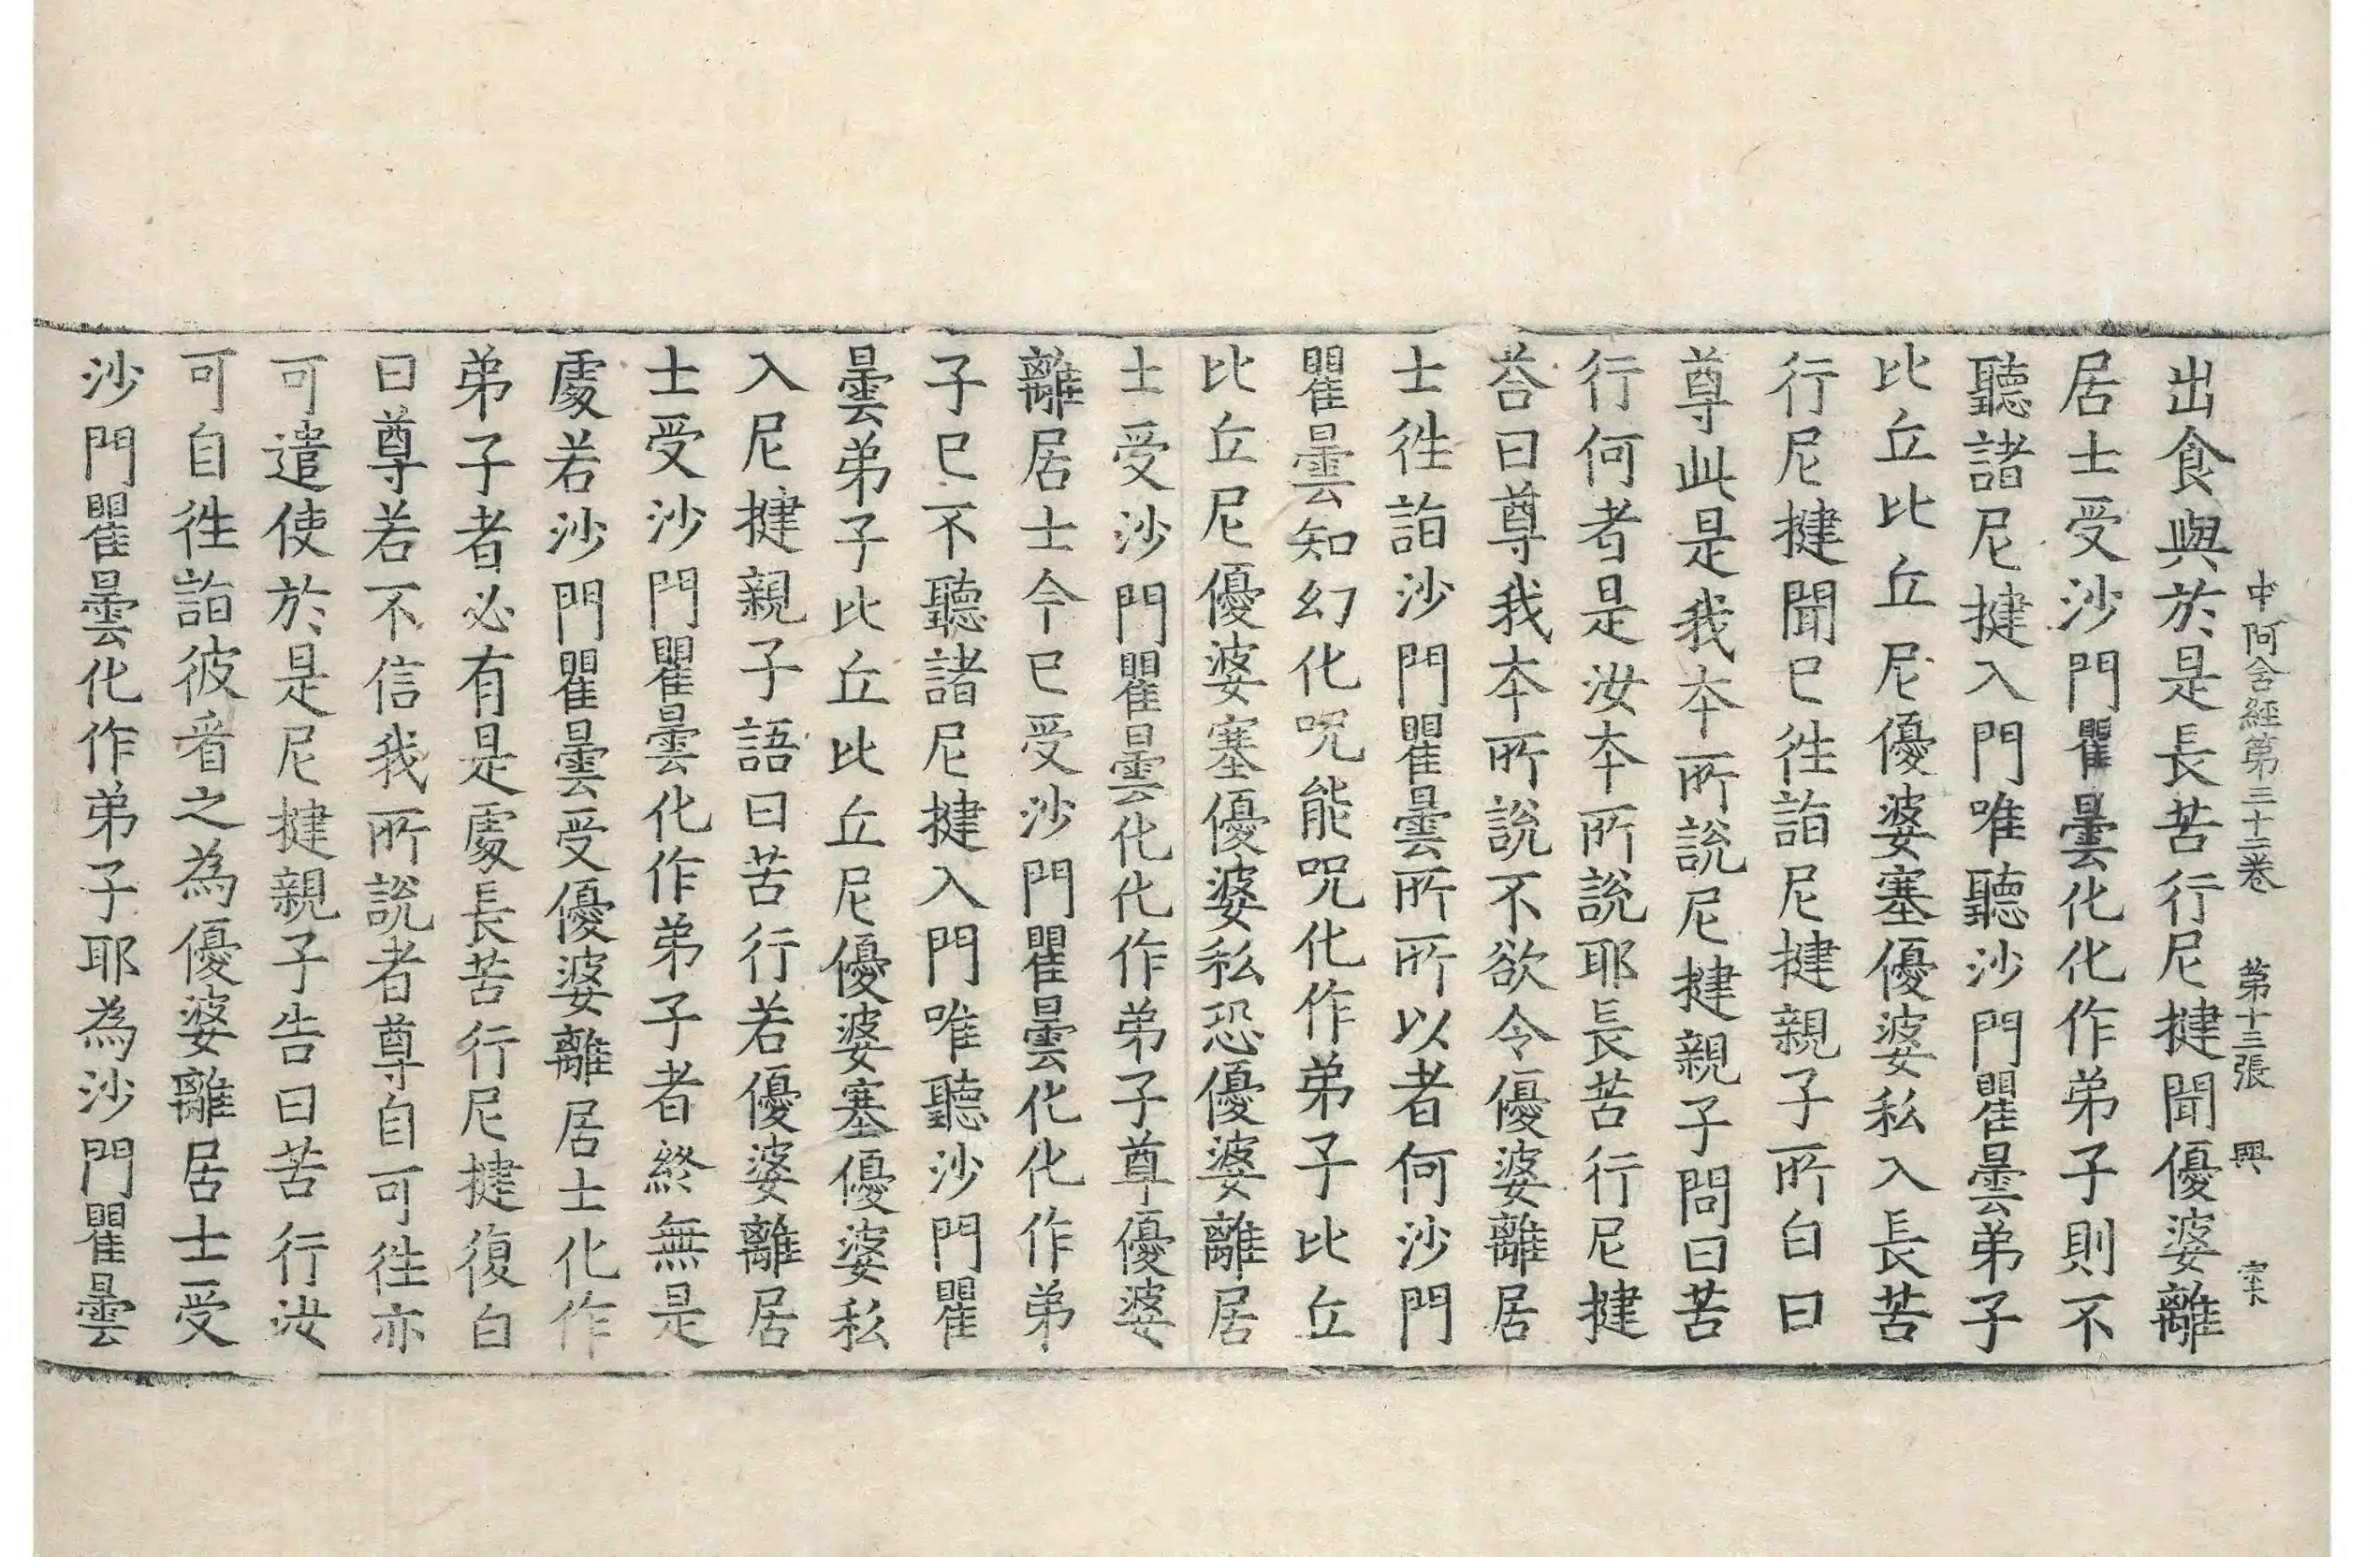 中阿含經第三十二卷　第十三張　興
出食與於是長苦行尼揵聞優婆離
居士受沙門瞿曇化化作弟子則不
聽諸尼揵入門唯聽沙門瞿曇弟子
比丘比丘尼優婆塞優婆私入長苦
行尼揵聞已往詣尼揵親子所白曰
尊此是我本所說尼揵親子問曰苦
行何者是汝本所說耶長苦行尼揵
荅曰尊我本所說不欲令優婆離居
士徃詣沙門瞿曇所所以者何沙門
瞿曇知幻化呪能呪化作弟子比丘
比丘尼優婆塞優婆私恐優婆離居
士受沙門瞿曇化化作弟子尊優婆
離居士今已受沙門瞿曇化化作弟
子已不聽諸尼揵入門唯聽沙門瞿
曇弟子比丘比丘尼優婆塞優婆私
入尼揵親子語曰苦行若優婆離居
士受沙門瞿曇化作弟子者終無是
處若沙門瞿曇受優婆離居士化作
弟子者必有是處長苦行尼揵復白
曰尊若不信我所說者尊自可徃亦
可遣使於是尼揵親子告曰苦行汝
可自徃詣彼看之為優婆離居士受
沙門瞿曇化作弟子耶為沙門瞿曇